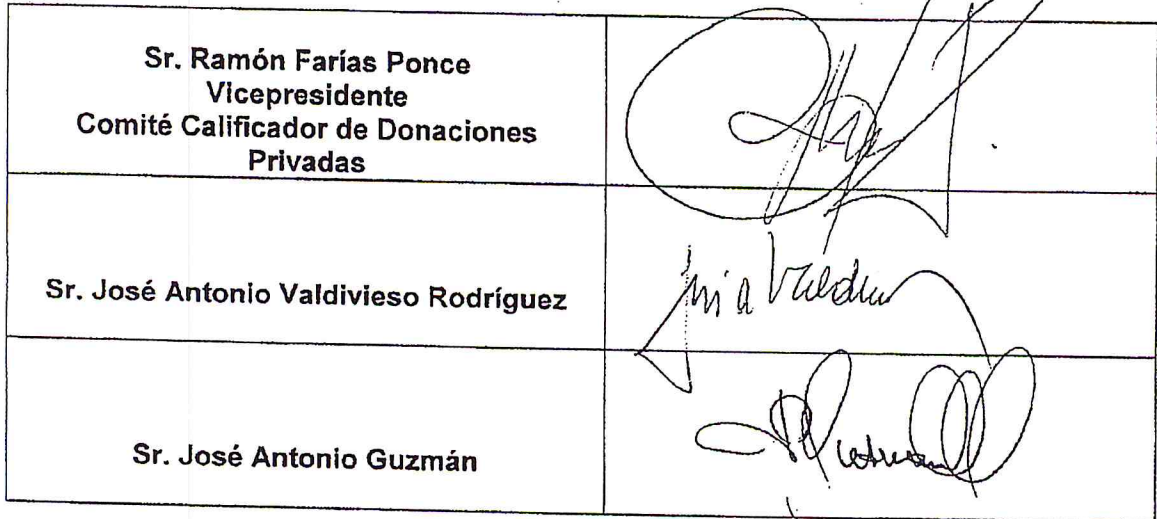 Sr. Ramón Farías Ponce
Vicepresidente
Comité Calificador de Donaciones
Privadas
Sr. José Antonio Valdivieso Rodríguez
Sr. José Antonio Guzmán